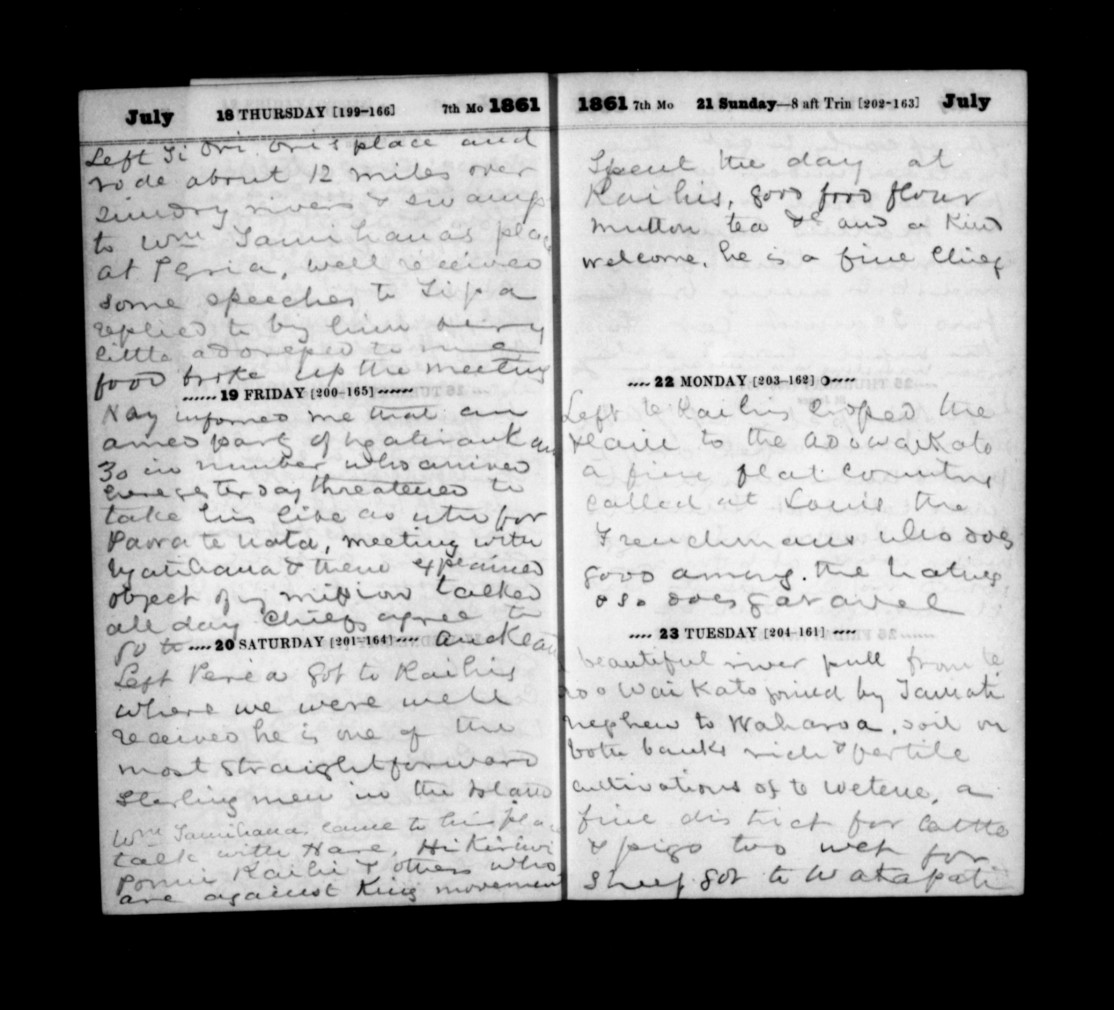 July 18 THURSDAY [199-166] 7th Mo 1861
Left Ti Ori Ori's place and
rode about 12 miles over
sundry rivers & swamps
to Wm Tamihanas place
at Peria, well received
some speeches to
replied to by him very
little to
food broke up the meeting
19 FRIDAY [200-165]
Nay informed me that an
armed party of
30 in number who arrived
here yesterday threatened to
take his life as utu for
Paora te uata, meeting with
Ngatihaua & them explained
object of my mission talked
all day Chiefs agree to
go to Auckland
20 SATURDAY [201-164]
Left Peria got to Raihis
where we were well
received he is one of the
most straightforward
sterling men in the Island
Wm Tamihana came to his place
talk with Hare, Hikiriwi
Pomui Raihi & others who
are against King movement
1861 7th Mo 21 Sunday—8 aft Trin [202-163] July
Spent the day at
Raihis, good food flour
mutton tea &c and a kind
welcome. he is a fine Chief
22 MONDAY [203-162]
Left te Raihis the
to the
a fine flat country
called at Louis the
Frenchmans who does
good among the natives
so does Garavel
23 TUESDAY [204-161]
beautiful river pull from te
roo Waikato joined by Tamati
nephew to Waharoa, soil on
both banks rich & fertile
cultivations of te Wetene, a
fine district for Cattle
& pigs too wet for
sheep got to Watapati